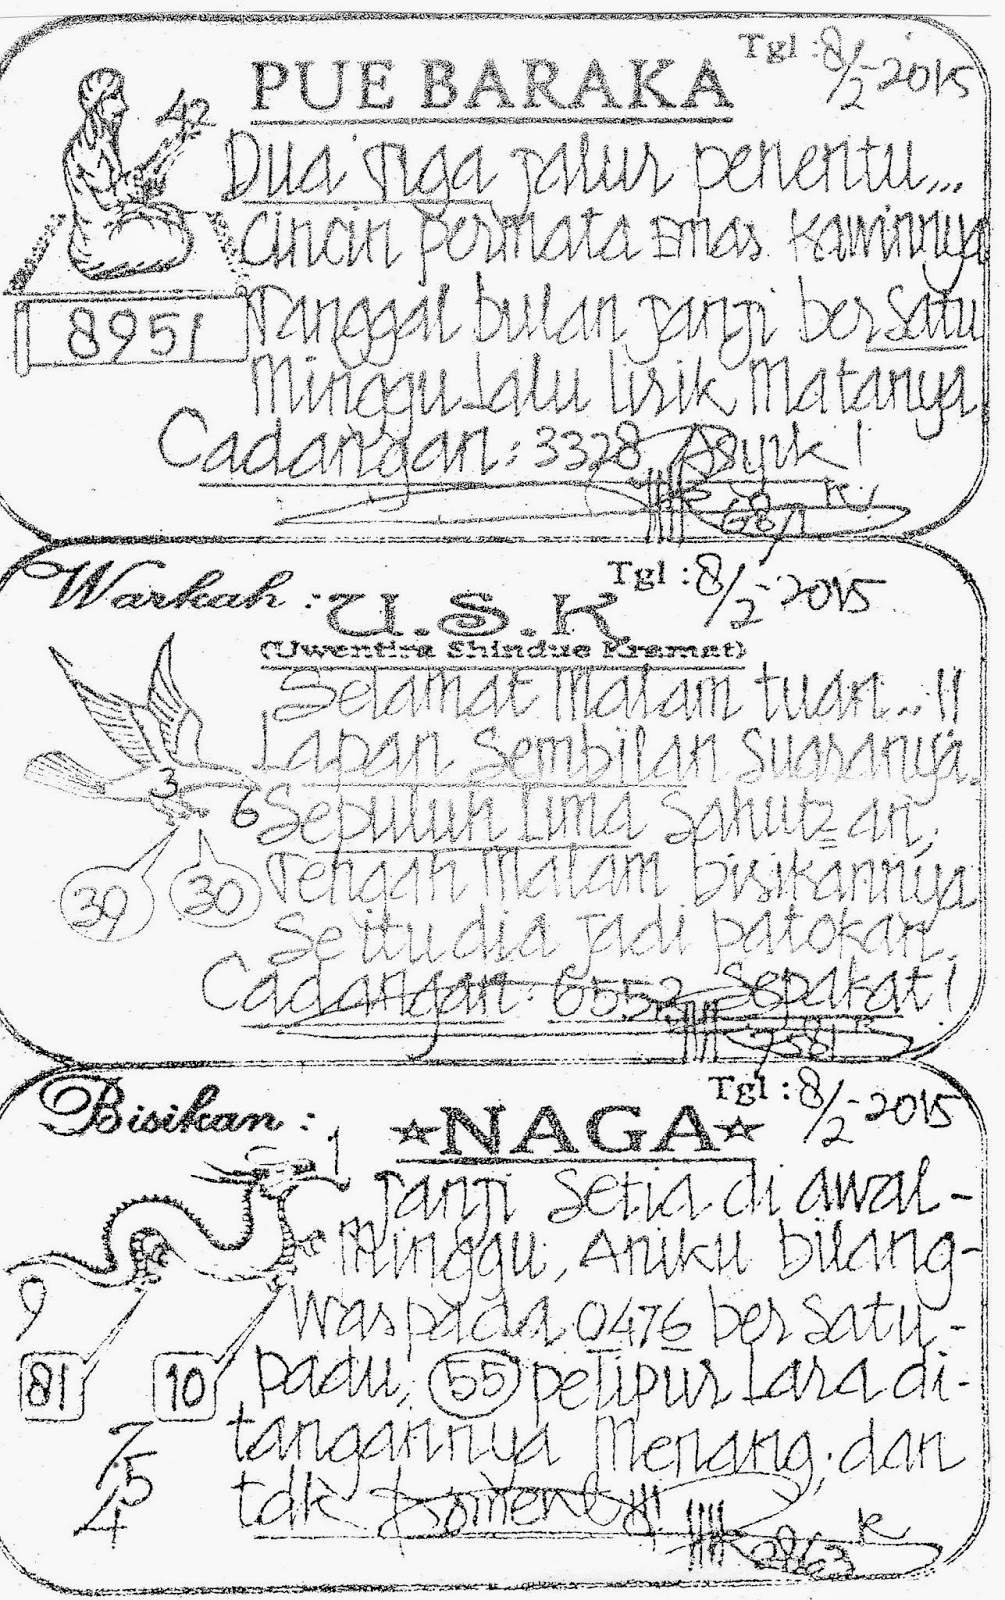 Tgl : 8/2-2015
PUE BARAKA
42
Dua Tiga jalur penentu...
Cincin permata Emas Kawinnya
8951
Tanggal bulan janji bersatu
Minggu Lalu lirik Matanya
Cadangan : 3328 Asyik !
Tgl : 8/2-2015
Warkah : U.S.K
(Uwentira Shindue Kramat)
Selamat Malam tuan..!!
Lapan Sembilan Suaranya.
3
6
Sepuluh Lima Sahut2 an,
39 30
Tengah Malam bisikannya
Se itu dia jadi patokan.
Cadangan : 6552 Sepakat !
Tgl : 8/2-2015
Bisikan : ☆NAGA☆
1
Janji Setia di awal-
Minggu, Aniku bilang-
9
Waspada 0476 bersatu-
81 10
padu, 55 pelipur Lara di-
tangannya Menang, dan
7
5
4
tdk Koment !!!
2863